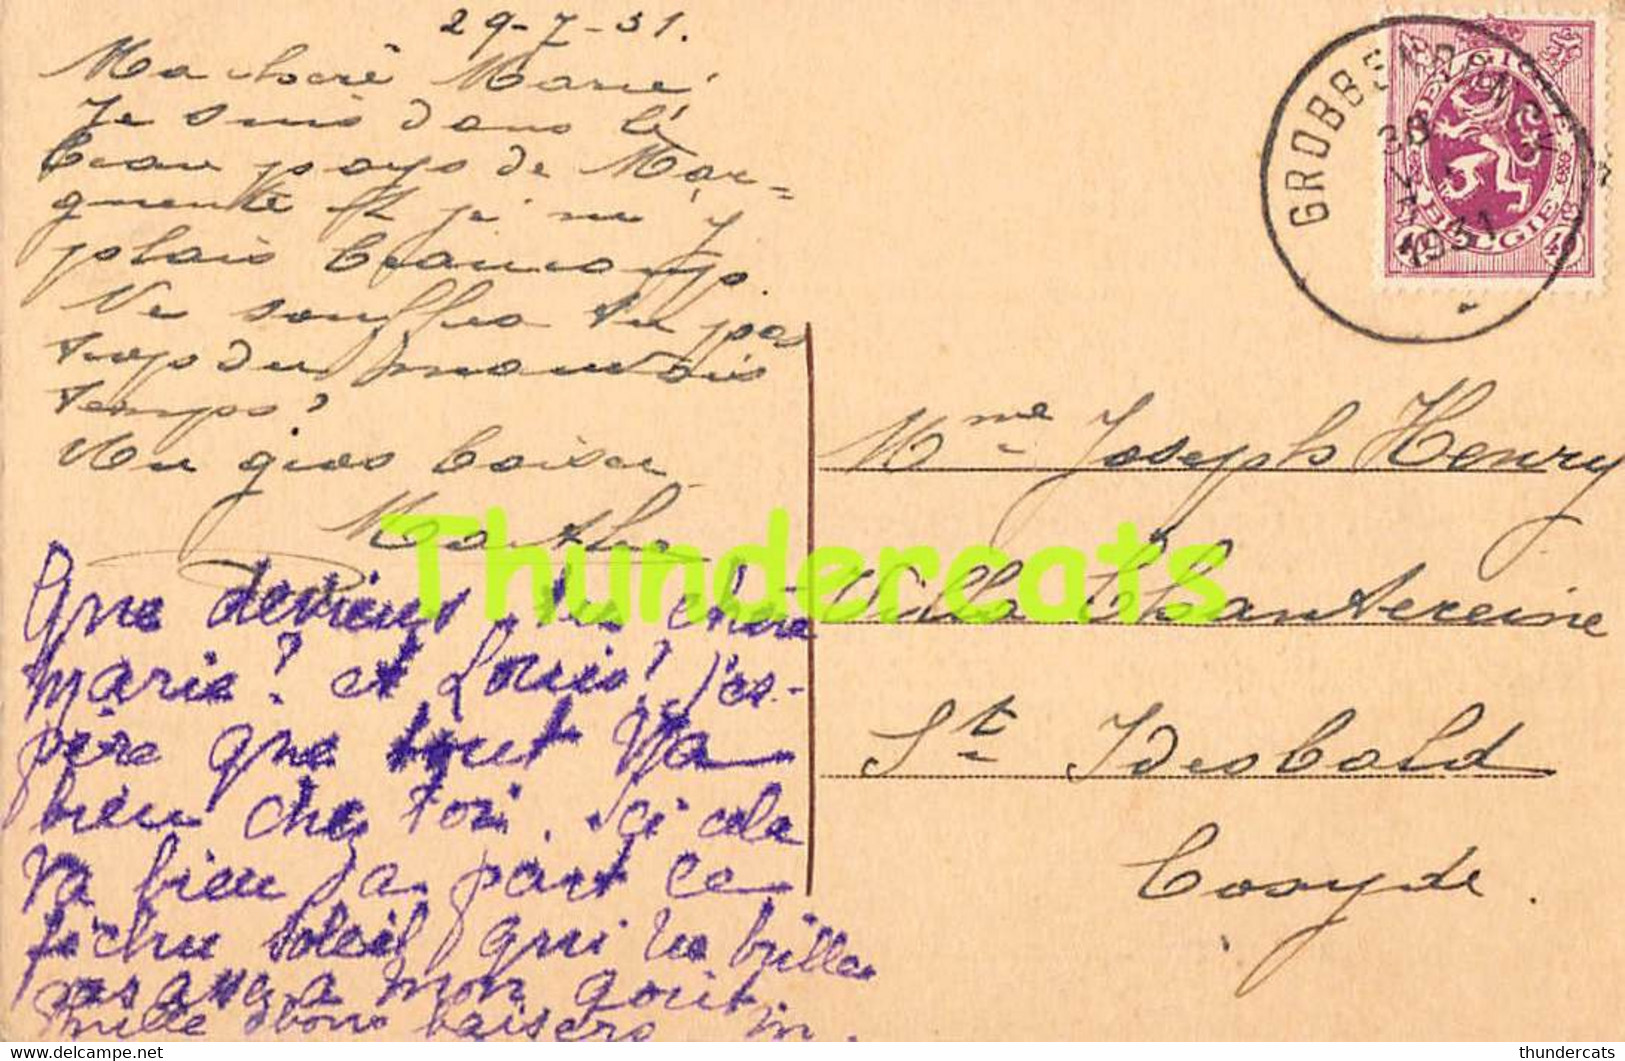 29-7-31.
Ma chère Marie
Je suis dans le
beau pays de Mar-
guerite et je m'y
plais beaucoup.
Ne souffres tu pas
trop du mauvais
temps?
Un gros baiser
Marthe
Que deviens-tu chère
Marie? et Louis? J'es-
père que tout va
bien chez toi. Ici cela
va bien à part ce
fichu soleil qui ne brille
pas assez a mon goût
Mille bons baisers
GROBBENDONCK
30
1931
BELGIQUE
BELGIË
40 40
Mme Joseph Henry
Villa Chantereine
St Idesbald
Coxyde.
Thundercats
https://www.delcampe.net
thundercats